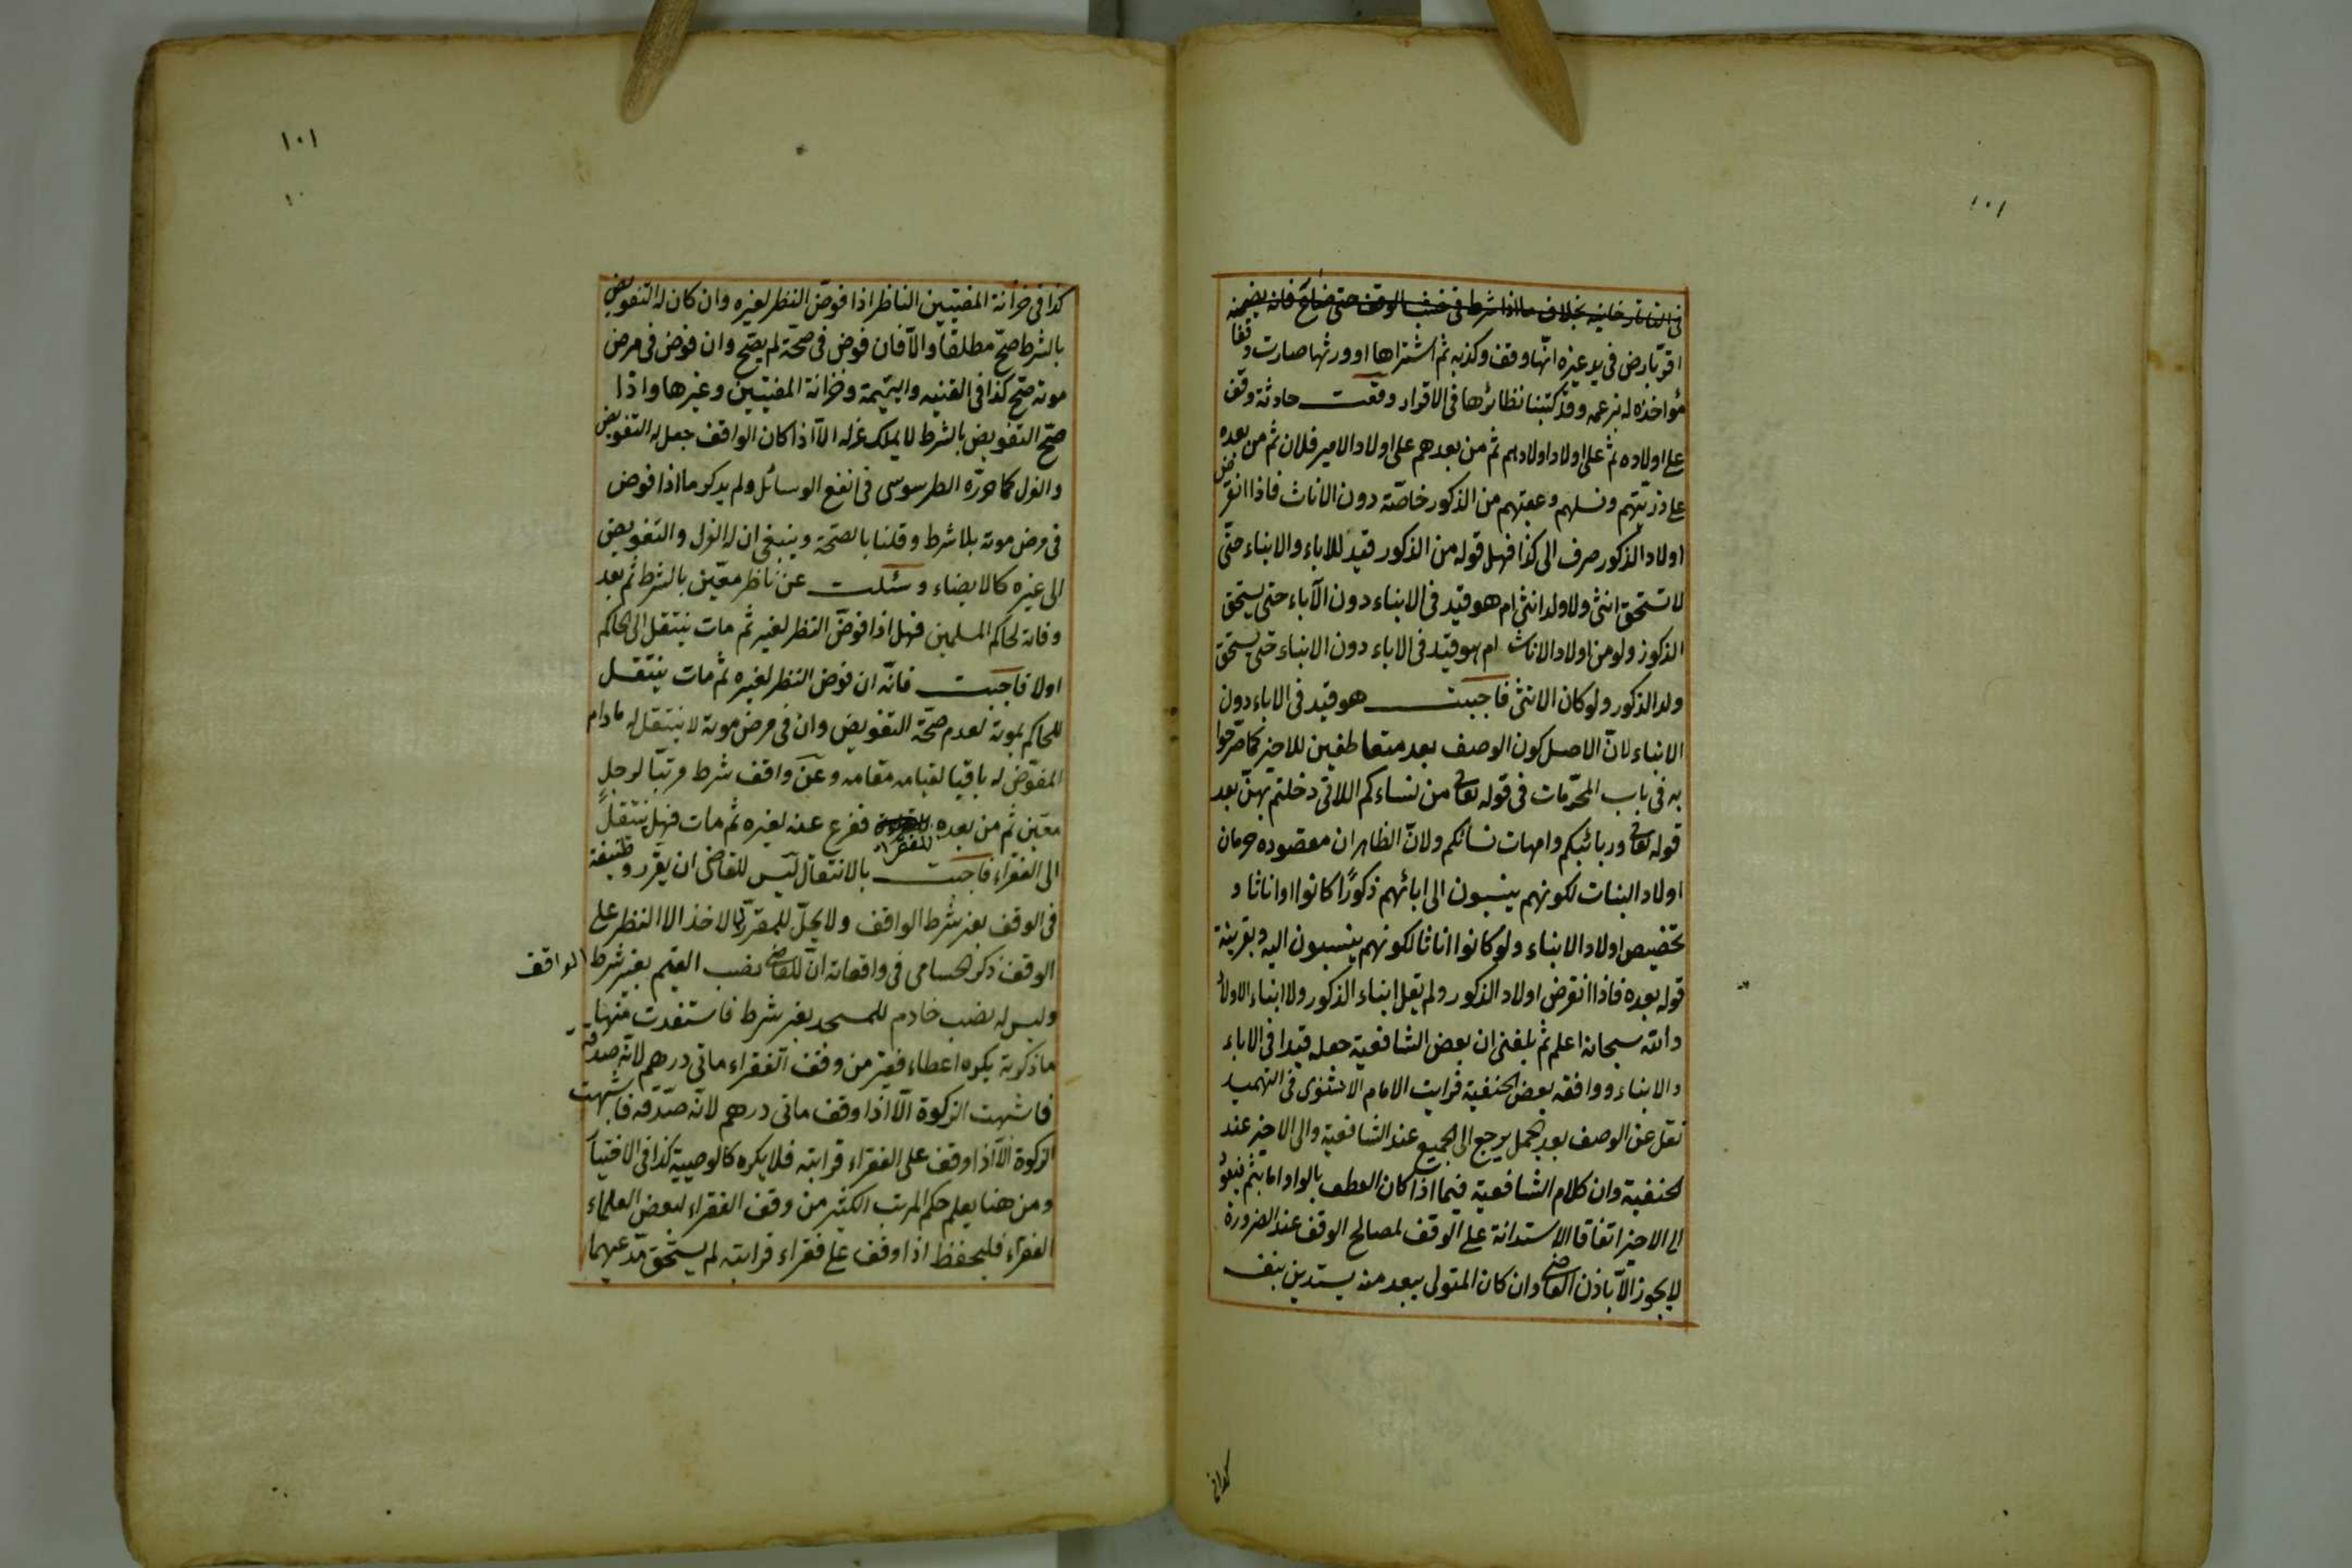 ١٠١
فى التاتارخانية بخلاف ما اذا شرط فى غصب الوقف حتى ضاع فانه يضمنه
اقرّ بارض فى يد غيره انّها وقف وكذبه ثم اشتراها او ورثها صارت وقفا
مؤاخذه له بزعمه وقد كتبنا نظائرها فى الاقرار وقعت حادثة وقف
على اولاده ثم على اولاد اولادهم ثم من بعدهم على اولاد الامير فلان ثم من بعده
على ذريّتهم ونسلهم وعقبهم من الذكور خاصّة دون الاناث فاذا انقرض
اولاد الذكور صرف الى كذا فهل قوله من الذكور قيد للاباء والابناء حتّى
لا تستحق انثى ولا ولد انثى ام هو قيد فى الابناء دون الآباء حتى يستحق
الذكور ولو من اولاد الاناث ام هو قيد فى الاباء دون الابناء حتى يستحق
ولد الذكور ولو كان الانثى فاجبت هو قيد فى الاباء دون
الابناء لانّ الاصل كون الوصف بعد متعاطفين للاخير كما صرّحوا
به فى باب المحرّمات فى قوله تعالى من نساءكم اللاتى دخلتم بهنّ بعد
قوله تعالى وربائبكم وامهات نسائكم ولانّ الظاهر ان مقصوده حرمان
اولاد البنات لكونهم ينسبون الى ابائهم ذكورًا كانوا او اناثا و
تخصيص اولاد الابناء ولو كانوا اناثا لكونهم ينسبون اليه وبقرينة
قوله بعده فاذا انقرض اولاد الذكور ولم يقل ابناء الذكور ولا ابناء الاولاد
والله سبحانه اعلم ثم بلغنى ان بعض الشافعية جعله قيدا فى الاباء
والابناء ووافقه بعض الحنفية فرايت الامام الاسنوى فى التمهيد
نقل عن الوصف بعد الجمل يرجع الى الجميع عند الشافعية والى الاخير عند
الحنفية وان كلام الشافعية فيما اذا كان العطف بالواو اما بثم فيعود
الى الاخير اتفاقا الاستدانة على الوقف لمصالح الوقف عند الضرورة
لا يجوز الّا باذن القاضى وان كان المتولى يبعد منه يستدين بنفسه
كذا فى
١٠١
كذا فى خزانة المفتيين الناظر اذا فوّض النظر لغيره وان كان له التفويض
بالشرط صحّ مطلقا والّا فان فوض فى صحّة لم يصّح وان فوض فى مرض
موته صّح كذا فى القنيه واليتيمة وخزانة المفتيين وغيرها واذا
صّح التفويض بالشرط لا يملك عزله الّا اذا كان الواقف جعل له التفويض
والعزل كما حرّره الطرسوسى فى انفع الوسائل ولم يذكر ما اذا فوض
فى مرض موته بلا شرط وقلنا بالصّحة وينبغى ان له العزل والتفويض
الى غيره كالايصاء وسئلت عن ناظر معيّن بالشرط ثم بعد
وفاته لحاكم المسلمين فهل اذا فوّض النظر لغير ثم مات ينتقل الى الحاكم
اولا فاجبت فانّه ان فوض النظر لغيره ثم مات ينتقل
للحاكم بموته لعدم صحّة التفويض وان فى مرض موته لا ينتقل له مادام
المفوّض له باقيا لقيامه مقامه وعن واقف شرط مرتبّا لرجلٍ
معيّن ثم من بعده للفقراء ففرع عنه لغيره ثم مات فهل ينتقل
الى الفقراء فاجبت بالانتقال ليس للقاضى ان يقرّر وظيفة
فى الوقف بغير شرط الواقف ولا يحلّ للمقرّر له الاخذ الا النظر على
الوقف ذكر الحسامى فى واقعاته انّ للقاضى نصب القيم بغير شرط الواقف
وليس له نصب خادم للمسجد بغير شرط فاستفدت منها
ما ذكرته يكره اعطاء فقير من وقف الفقراء مائى درهم لانّه صدقة
فاشبهت الزكوة الّا اذا وقف مائى درهم لانّه صدّقه فاشبهت
الزكوة الّا اذا وقف على الفقراء قرابته فلا يكره كالوصيية كذا فى الاختيار
ومن هنا يعلم حكم المرتب الكثير من وقف الفقراء لبعض العلماء
الفقراء فليحفظ اذا وقف على فقراء قرابته لم يستحق مدّعيهما